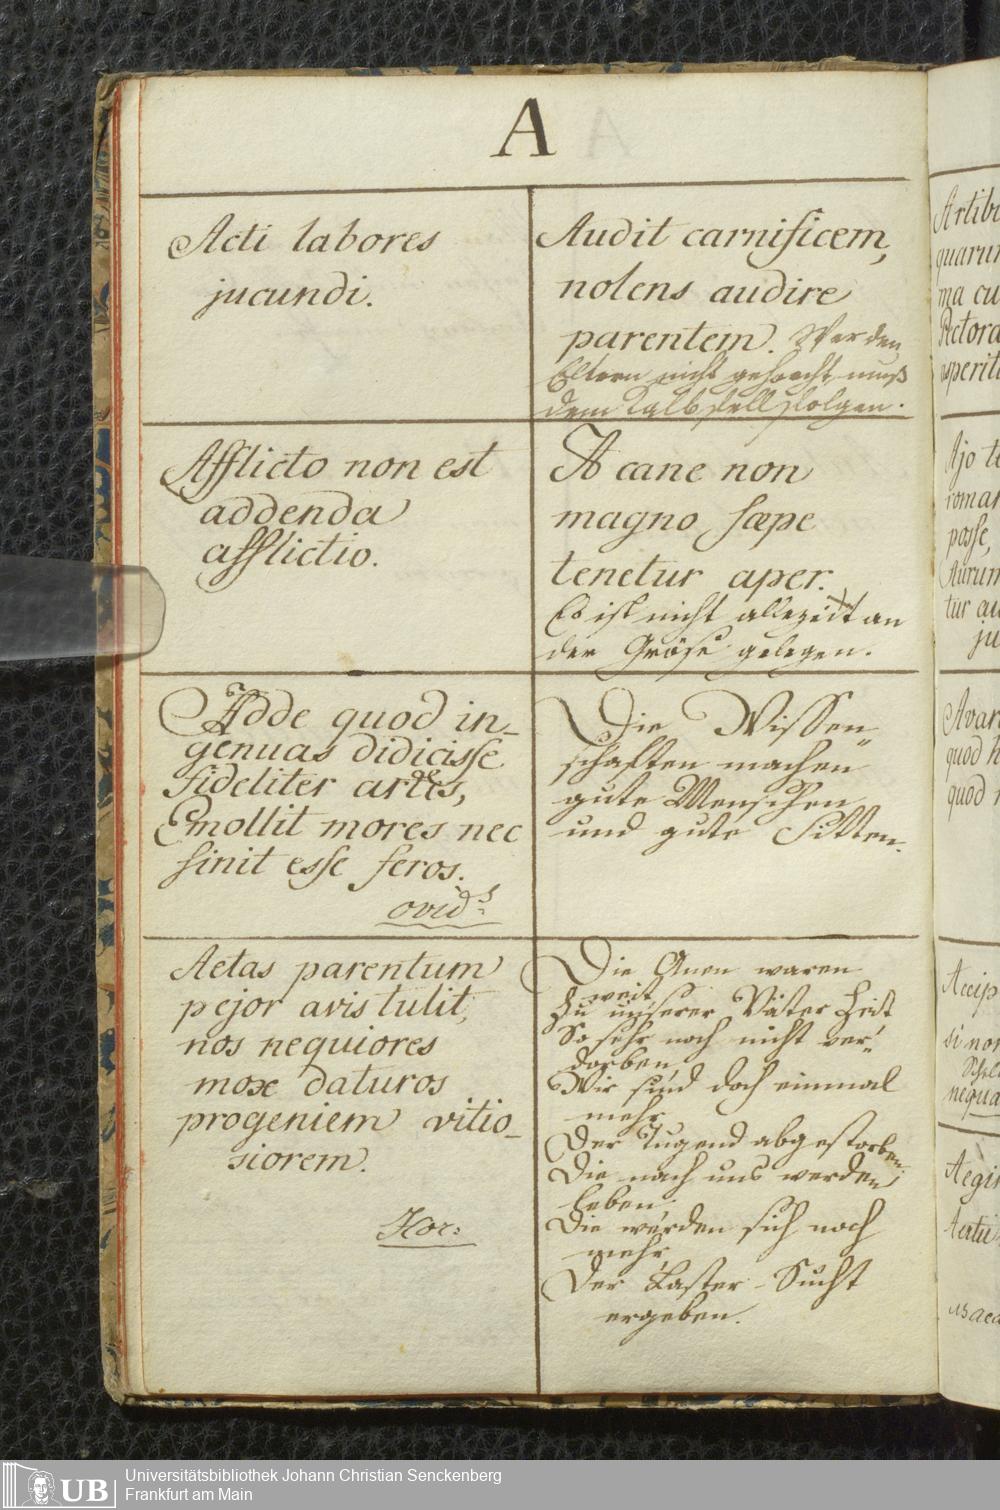 A
Acti labores
jucundi.
Audit carnificem,
nolens audire
parentem. Wer den
Eltern nicht gehorcht muß
dem Kalbsfell folgen.
Afflicto non est
addenda
afflictio.
A cane non
magno sæpe
tenetur aper.
Es ist nicht allezeit an
der Gröse gelegen.
Adde quod in-
genuas didicisse
fideliter artes,
Emollit mores nec
sinit esse feros.
ovid:
Die Wissen
schaften machen
gute Menschen
und gute Sitten.
Aetas parentum
pejor avis tulit,
nos nequiores
mox daturos
progeniem vitio-
siorem.
Hor:
Die Anen waren
weit
Zu unserer Väter Zeit
So sehr noch nicht ver-
dorben,
Wir sind doch einmal
mehr
Der Tugend abgestorben
Die nach uns werden
leben,
Die werden sich noch
mehr,
Der Laster-Sucht
ergeben.
Artib
quarum
ma cu
Pectora
asperit
Ajo te
roman
posse,
Aurum
tur au
ju
Avar
quod h
quod n
Accip
si non
nequa
Aegi
UB
Universitätsbibliothek Johann Christian Senckenberg
Frankfurt am Main